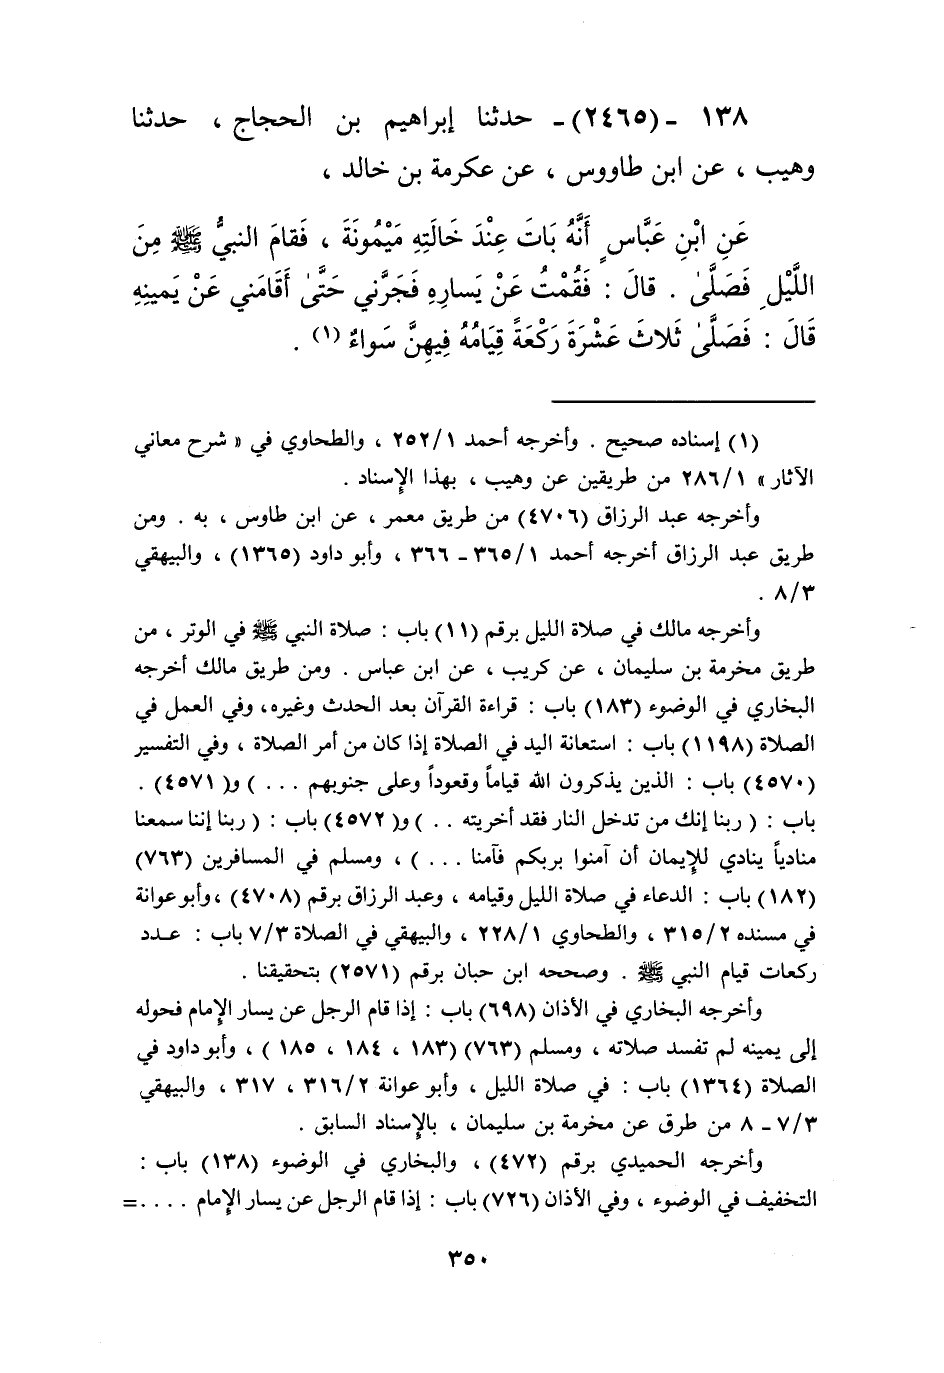 ١٣٨ - (٢٤٦٥) - حدثنا إبراهيم بن الحجاج ، حدثنا
وهيب ، عن ابن طاووس ، عن عكرمة بن خالد ،
عَنِ ابْنِ عَبَّاسٍ أَنَّهُ بَاتَ عِنْدَ خَالَتِهِ مَيْمُونَةَ ، فَقامَ النبيُّ ﷺ مِنَ
اللَّيْلِ فَصَلَّىٰ . قالَ : فَقُمْتُ عَنْ يَسارِهِ فَجَرَّني حَتَّىٰ أَقَامَني عَنْ يَمينِهِ
قَالَ : فَصَلَّىٰ ثَلاثَ عَشْرَةَ رَكْعَةً قِيَامُهُ فِيهِنَّ سَواءٌ (١) .
(١) إسناده صحيح . وأخرجه أحمد ٢٥٢/١ ، والطحاوي في « شرح معاني
الآثار » ٢٨٦/١ من طريقين عن وهيب ، بهذا الإسناد .
وأخرجه عبد الرزاق (٤٧٠٦) من طريق معمر ، عن ابن طاوس ، به . ومن
طريق عبد الرزاق أخرجه أحمد ٣٦٥/١ - ٣٦٦ ، وأبو داود (١٣٦٥) ، والبيهقي
٨/٣ .
وأخرجه مالك في صلاة الليل برقم (١١) باب : صلاة النبي ﷺ في الوتر ، من
طريق مخرمة بن سليمان ، عن كريب ، عن ابن عباس . ومن طريق مالك أخرجه
البخاري في الوضوء (١٨٣) باب : قراءة القرآن بعد الحدث وغيره، وفي العمل في
الصلاة (١١٩٨) باب : استعانة اليد في الصلاة إذا كان من أمر الصلاة ، وفي التفسير
(٤٥٧٠) باب : الذين يذكرون الله قياماً وقعوداً وعلى جنوبهم . . . ) و( ٤٥٧١) .
باب : ( ربنا إنك من تدخل النار فقد أخريته . . ) و( ٤٥٧٢) باب : ( ربنا إننا سمعنا
منادياً ينادي للإيمان أن آمنوا بربكم فآمنا . . . ) ، ومسلم في المسافرين (٧٦٣)
(١٨٢) باب : الدعاء في صلاة الليل وقيامه ، وعبد الرزاق برقم (٤٧٠٨) ،وأبو عوانة
في مسنده ٣١٥/٢ ، والطحاوي ٢٢٨/١ ، والبيهقي في الصلاة ٧/٣ باب : عـدد
ركعات قيام النبي ﷺ . وصححه ابن حبان برقم (٢٥٧١) بتحقيقنا .
وأخرجه البخاري في الأذان (٦٩٨) باب : إذا قام الرجل عن يسار الإمام فحوله
إلى يمينه لم تفسد صلاته ، ومسلم (٧٦٣) (١٨٣ ، ١٨٤ ، ١٨٥ ) ، وأبو داود في
الصلاة (١٣٦٤) باب : في صلاة الليل ، وأبو عوانة ٣١٦/٢ ، ٣١٧ ، والبيهقي
٧/٣ - ٨ من طرق عن مخرمة بن سليمان ، بالإسناد السابق .
وأخرجه الحميدي برقم (٤٧٢) ، والبخاري في الوضوء (١٣٨) باب :
التخفيف في الوضوء ، وفي الأذان (٧٢٦) باب : إذا قام الرجل عن يسار الإمام . . . .=
٣٥٠